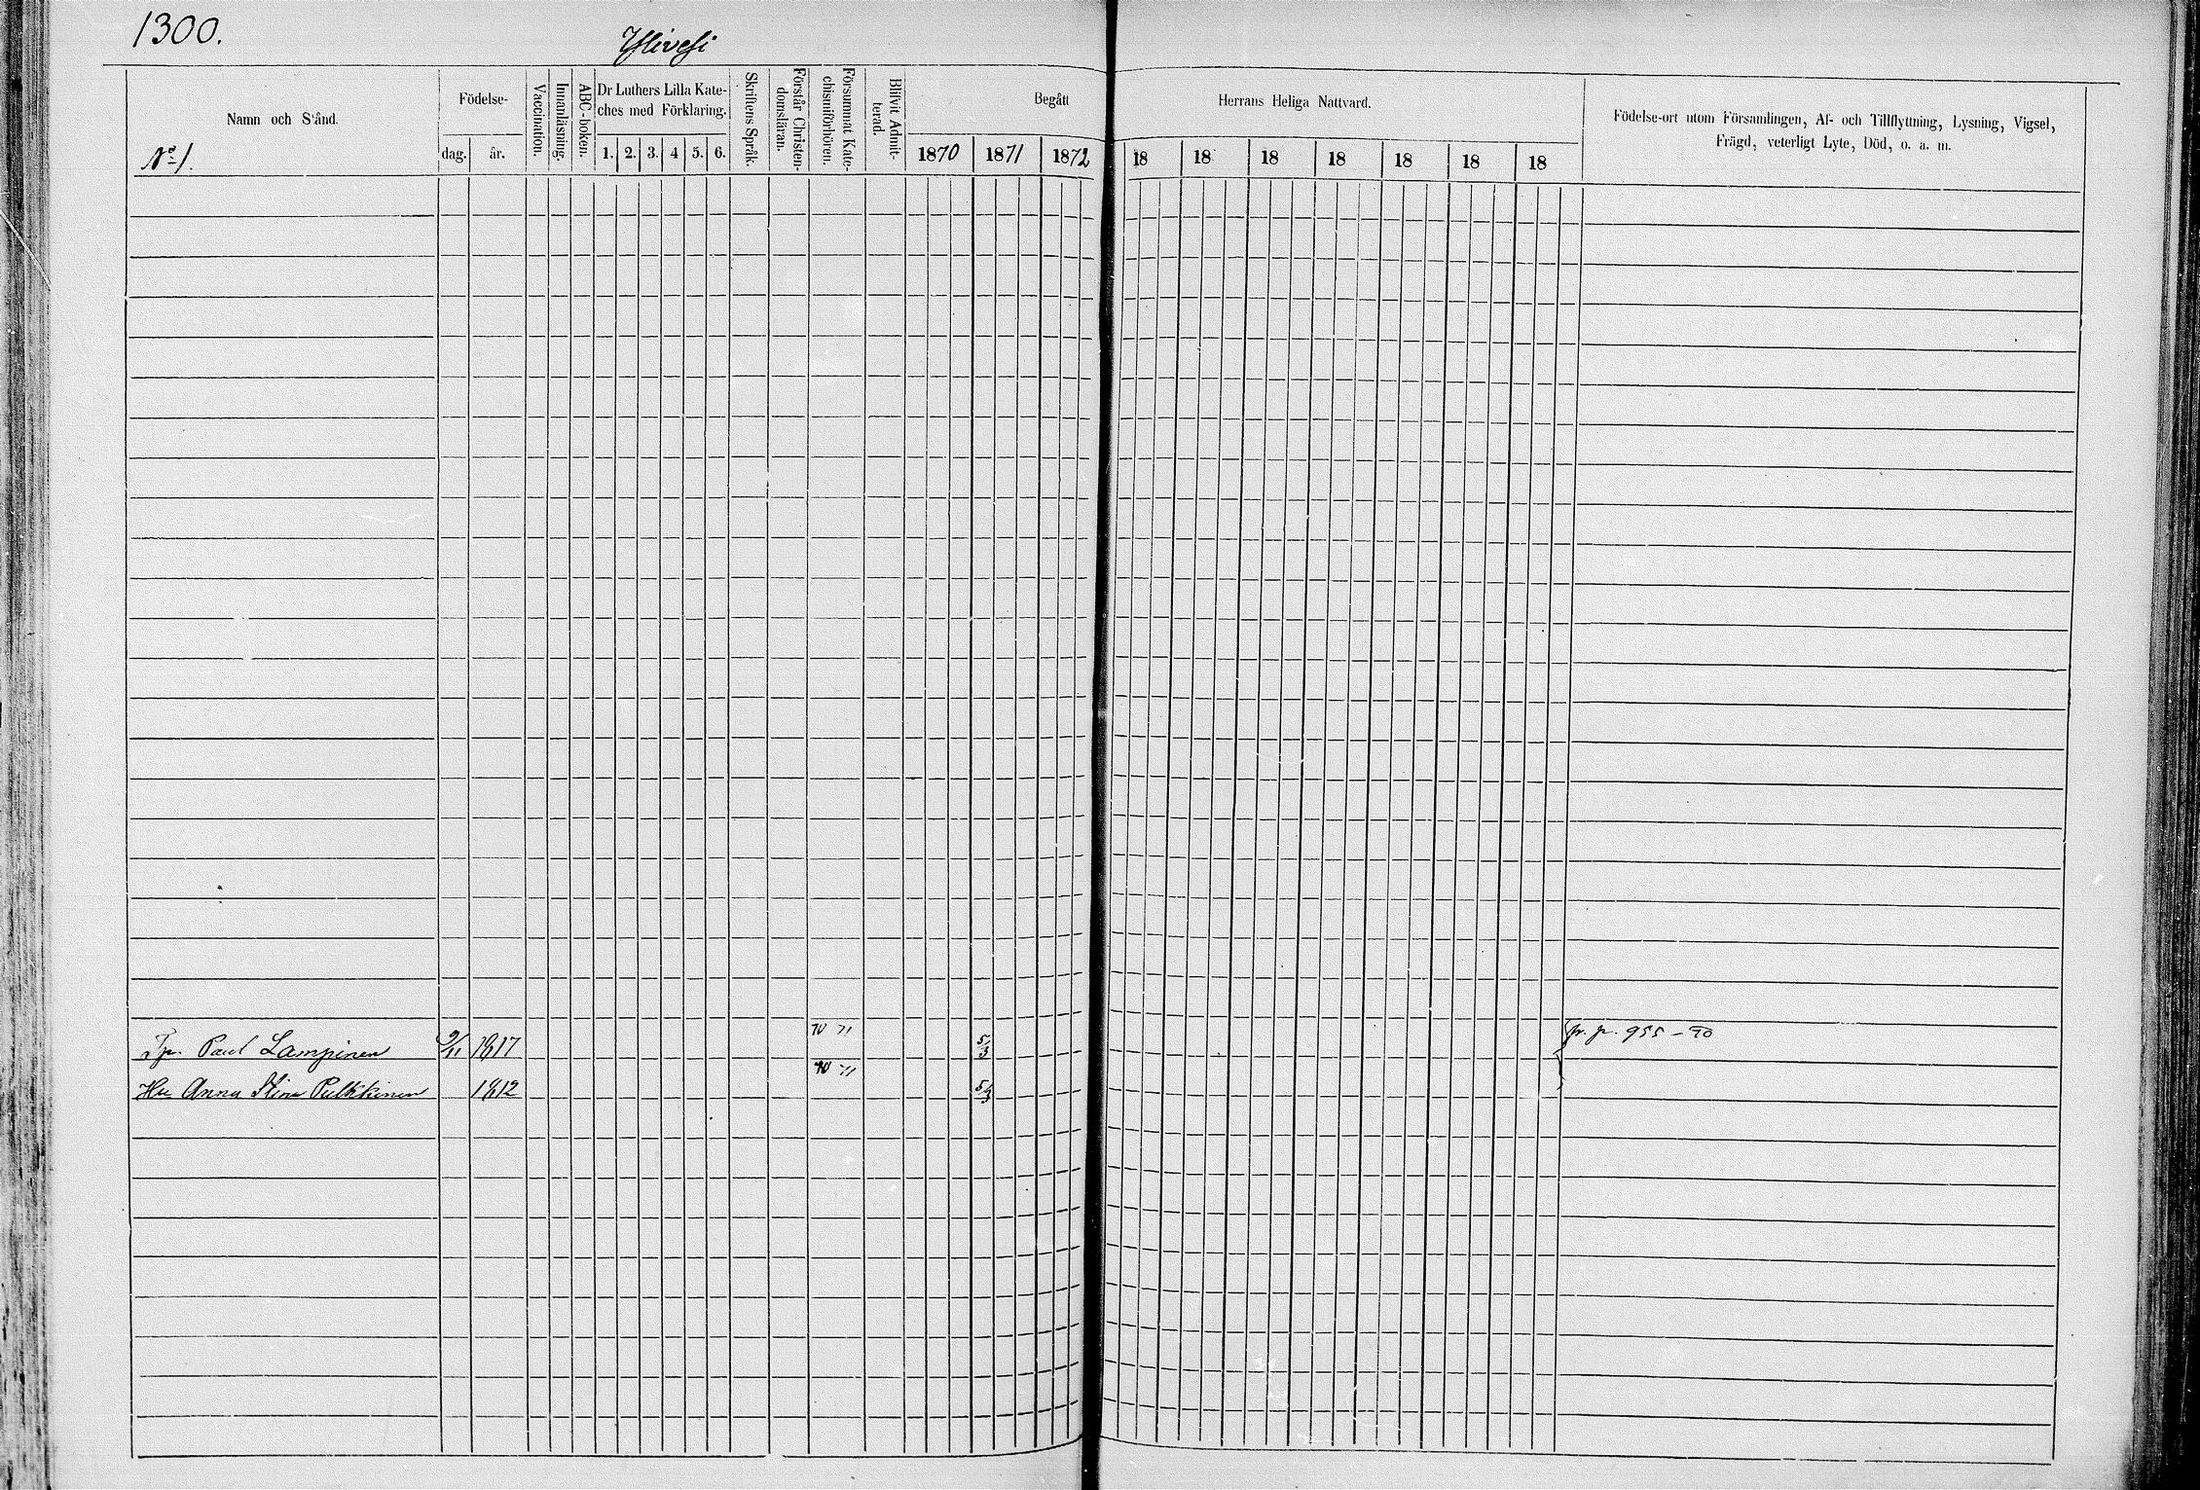 1300.
Ylivesi
Namn och Stånd.
No 1.
Födelse-
dag.
år.
Vaccination.
Innanläsning.
ABC-boken.
Dr Luthers Lilla Kate-
ches med Förklaring.
1. 2. 3. 4 5. 6.
Skriftens Språk.
Förstår Christen-
domsläran.
Försummat Kate-
chismiförhören.
Blifvit Admit-
terad.
Begått
Herrans Heliga Nattvard.
1870 1871 1872 18 18 18 18 18 18 18
Födelse-ort utom Församlingen, Af- och Tillflyttning, Lysning, Vigsel,
Frägd, veterligt Lyte, Död, o. a. m.
Tp. Paul Lampinen 9/11 1817 70 71 5/3 fr. p. 955 - 70
Hu Anna Stina Pulkkinen 1812 70 71 5/3